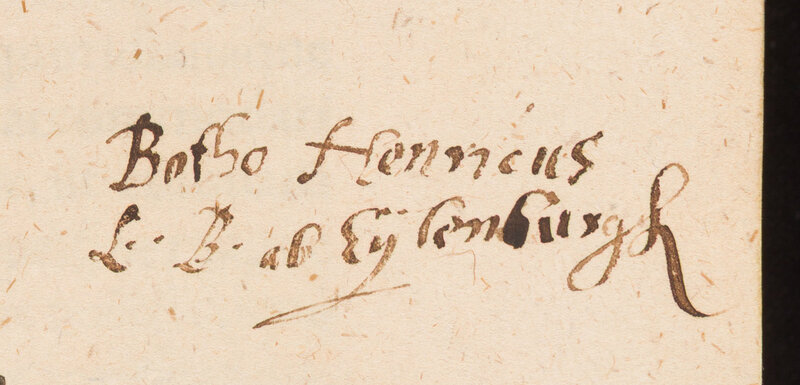 Botho Henricus
L. B. ab Eÿlenburgh